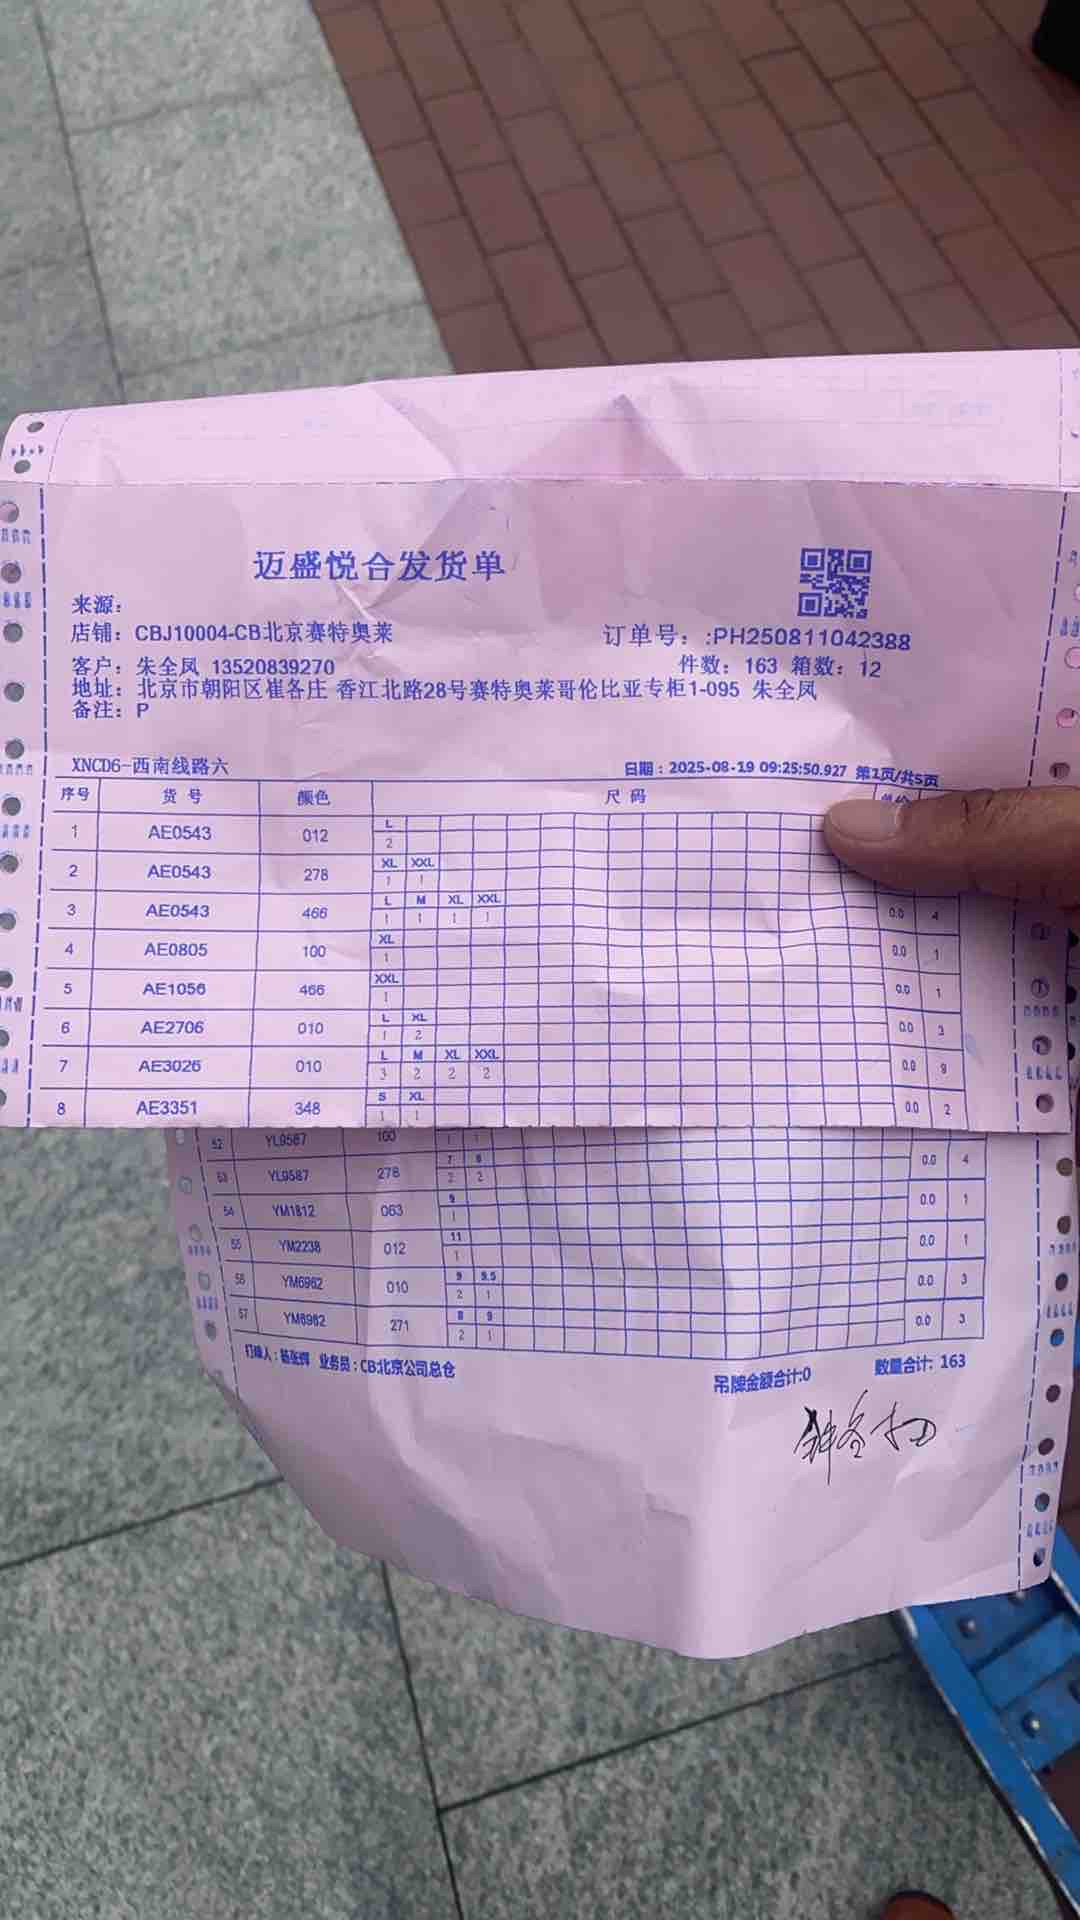 迈盛悦合发货单
来源:
店铺: CBJ10004-CB北京赛特奥莱
订单号: :PH250811042388
客户: 朱全凤 13520839270
件数: 163 箱数: 12
地址: 北京市朝阳区崔各庄 香江北路28号赛特奥莱哥伦比亚专柜1-095 朱全凤
备注: P
XNCD6-西南线路六
日期: 2025-08-19 09:25:50.927 第1页/共5页
序号 货号 颜色 尺码
L
1 AE0543 012
2
XL XXL
2 AE0543 278
1 1
L M XL XXL
3 AE0543 466 0.0 4
1 1 1 1
XL
4 AE0805 100 0.0 1
1
XXL
5 AE1056 466 0.0 1
1
L XL
6 AE2706 010 0.0 3
1 2
L M XL XXL
7 AE3026 010 0.0 9
3 2 2 2
S XL
8 AE3351 348 0.0 2
1 1
52 YL9587 100
1 1
7 8
53 YL9587 278 0.0 4
2 2
9
54 YM1812 063 0.0 1
1
11
55 YM2238 012 0.0 1
1
9 9.5
56 YM6962 010 0.0 3
2 1
8 9
57 YM6962 271 0.0 3
2 1
业务员: CB北京公司总仓
吊牌金额合计:0
数量合计: 163